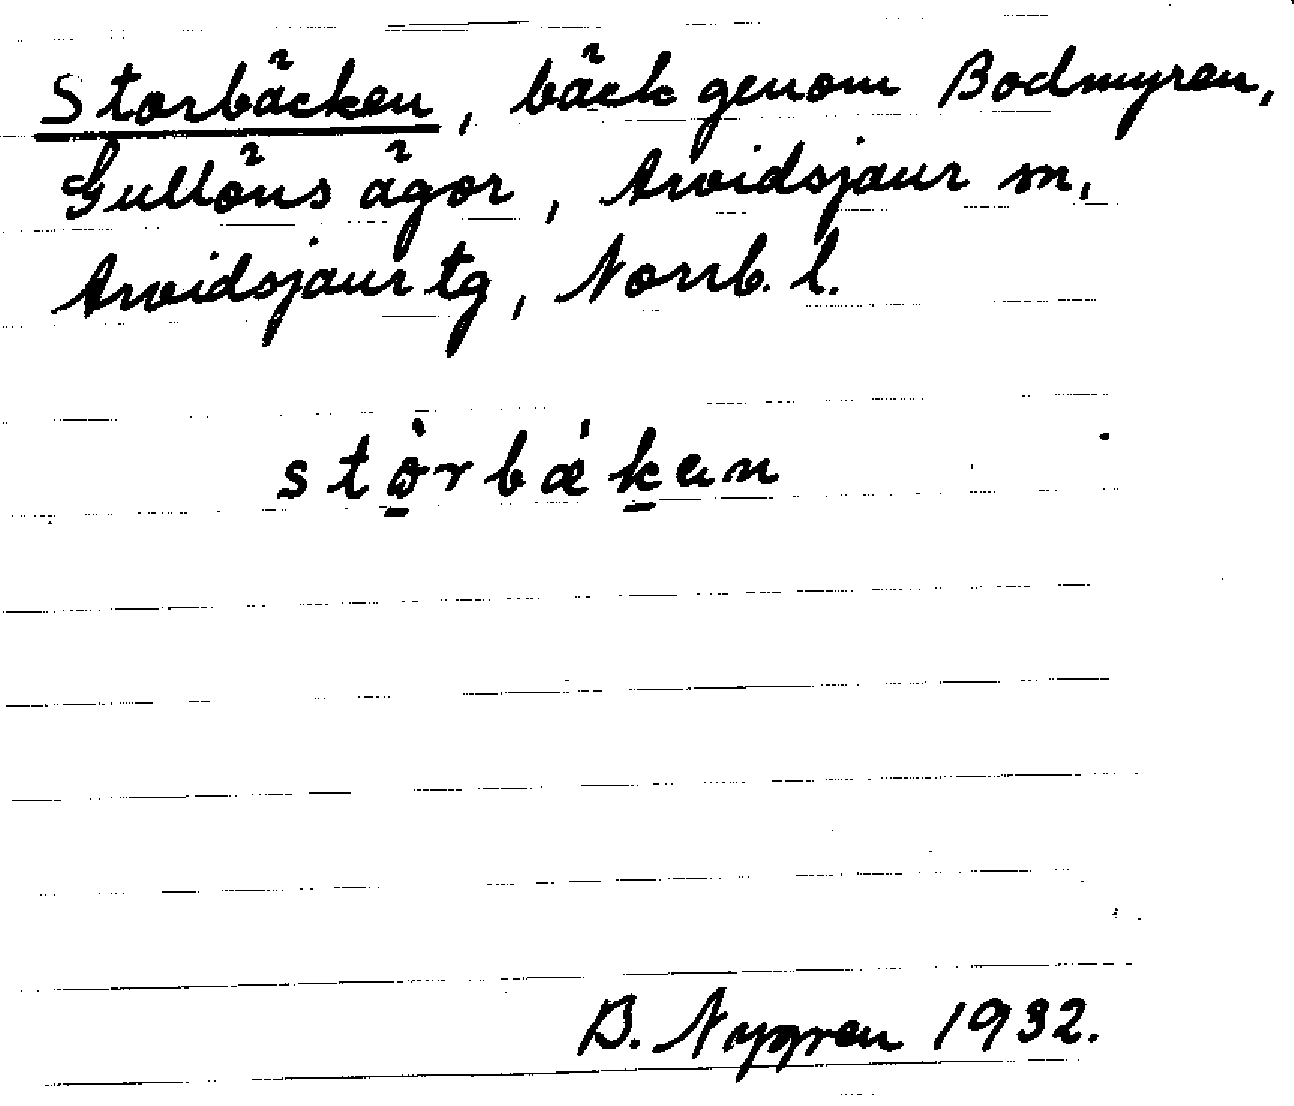 Storbäcken, bäck genom Bodmyren,
Gullöns ägor, Arvidsjaur sn,
Arvidsjaur tg, Norrb. l.
stò̱rbǽḵen
B. Nygren 1932.